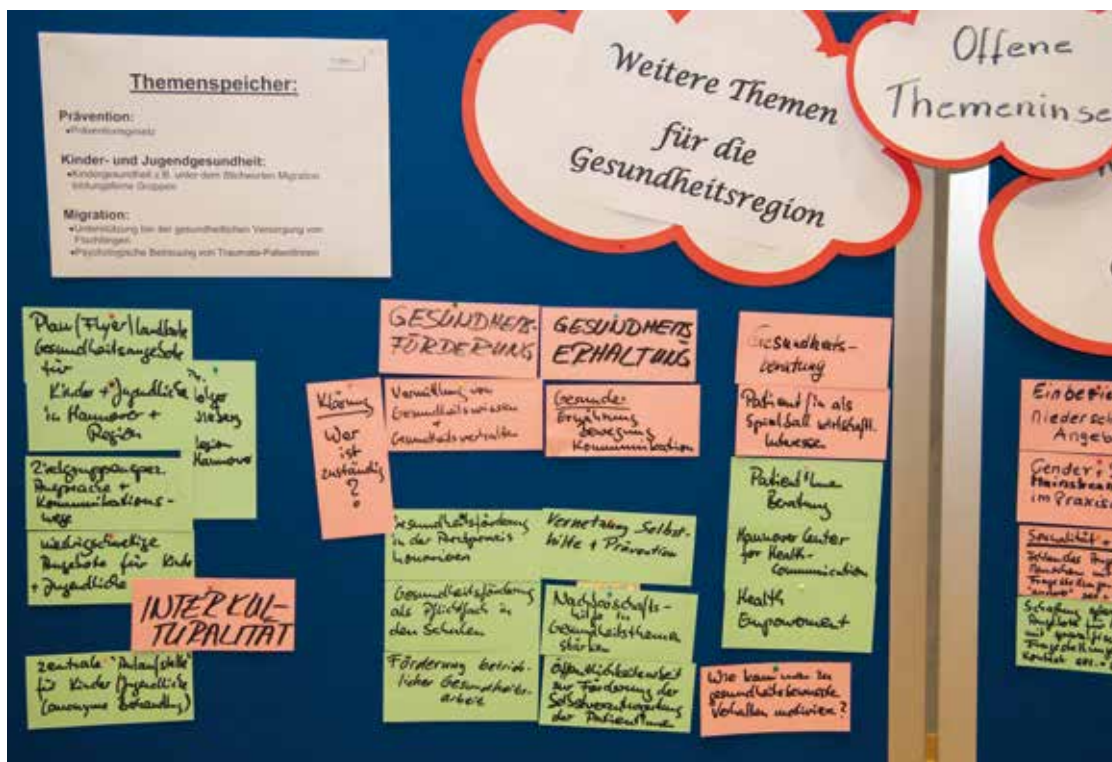 Themenspeicher:
Prävention:
•Präventionsgesetz
Kinder- und Jugendgesundheit:
•Kindergesundheit z.B. unter dem Stichworten Migration
bildungsferne Gruppen
Migration:
•Unterstützung bei der gesundheitlichen Versorgung von
Flüchtlingen
•Psychologische Betreuung von Traumata-PatientInnen
Weitere Themen
für die
Gesundheitsregion
Offene
Themeninse
Plan/Flyer/Landkarte
Gesundheitsangebote
für
Kinder + Jugendliche
in Hannover +
Region
Region
Hannover
Zielgruppenspez.
Ansprache +
Kommunikations-
wege
niedrigschwellige
Angebote für Kinder
+ Jugendliche
INTERKUL-
TURALITÄT
zentrale "Anlaufstelle"
für Kinder/Jugendliche
(anonyme Behandlung)
Klärung
Wer
ist
zuständig
?
GESUNDHEITS-
FÖRDERUNG
Vermittlung von
Gesundheitswissen
+
Gesundheitsverhalten
Gesundheitsförderung
in der Arztpraxis
honorieren
Gesundheitsförderung
als Pflichtfach in
den Schulen
Förderung betrieb-
licher Gesundheits-
arbeit
GESUNDHEITS
ERHALTUNG
Gesunde
Ernährung
bewegung
Kommunikation
Vernetzung Selbst-
hilfe + Prävention
Nachbarschafts-
hilfe in
Gesundheitsthemen
stärken
Öffentlichkeitsarbeit
zur Förderung der
Selbstverantwortung
der PatientInnen
Gesundheits-
beratung
Patient/in als
Spielball wirtschaftl.
Interessen
Patient*Innen
Beratung
Hannover Center
for Health-
Communication
Health
Empowerment
Wie kann man zu
gesundheitsbewusste
Verhalten motivieren?
Einbezie
niedersch
Angeb
Gender +
Mainstream
im Praxis
Sexualität +